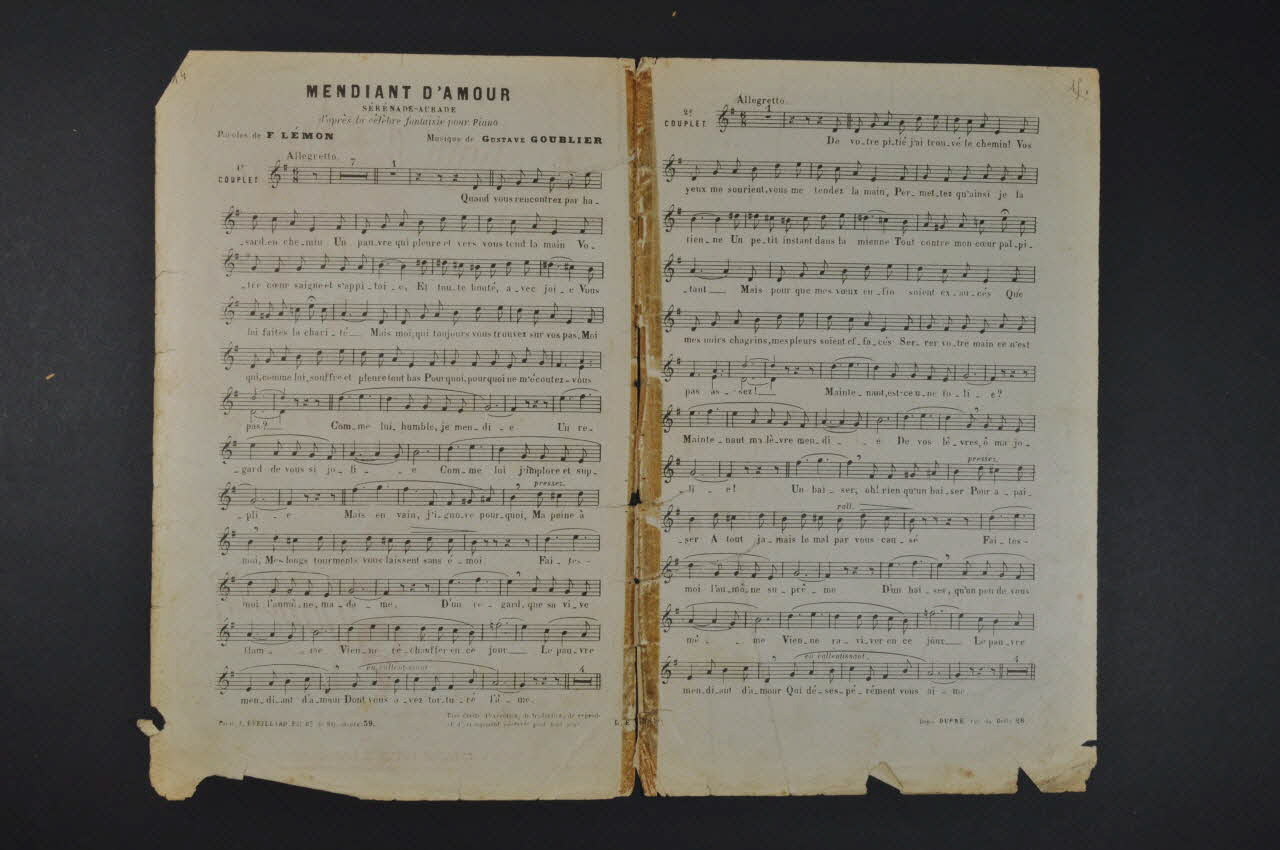 MENDIANT D'AMOUR
SÉRÉNADE-AUBADE
d'après la célèbre fantaisie pour Piano
Paroles de F. LÉMON Musique de GUSTAVE GOUBLIER
Allegretto.
1er COUPLET
7 1
Quand vous rencontrez par ha_
_sard en che_min Un pau_vre qui pleure et vers vous tend la main Vo_
_tre cœur saigne et s'appi_toi_e, Et tou_te bonté, a_vec joi_e Vous
lui faites la chari_té_ Mais moi, qui toujours vous trouvez sur vos pas, Moi
qui, comme lui, souffre et pleure tout bas Pourquoi, pourquoi ne m'écoutez_vous
pas? Com_me lui, humble, je men_di_e Un re_
_gard de vous si jo_li_e Com_me lui j'implore et sup_
pressez.
_pli_e Mais en vain, j'i_gno_re pour_quoi, Ma peine à
moi, Mes longs tourments vous laissent sans é_moi. Fai_tes_
moi l'aumô_ne, ma_da_me, D'un re_gard, que sa vi_ve
flam_me Vien_ne ré_chauffer en ce jour_ Le pau_vre
en rallentissant
4
men_di_ant d'a_mour Dont vous a_vez tor_tu_ré l'â_me.
Paris, L. ÉVEILLARD 39.
Tous droits d'exécution, de traduction, de reproduc
2e COUPLET
Allegretto.
1
De vo_tre pi_tié j'ai trou_vé le chemin! Vos
yeux me sourient, vous me tendez la main, Per_met_tez qu'ainsi je la
tien_ne Un pe_tit instant dans la mienne Tout contre mon cœur pal_pi_
_tant_ Mais pour que mes vœux en_fin soient ex_au_cés Que
mes noirs chagrins, mes pleurs soient ef_fa_cés Ser_rer vo_tre main ce n'est
pas as_sez!_ Mainte_nant, est-ce u_ne fo_li_e?
Mainte_nant ma lè_vre men_di_e De vos lè_vres, ô ma jo_
pressez.
_li_e! Un bai_ser, oh! rien qu'un bai_ser Pour a_pai_
rall.
_ser A tout ja_mais le mal par vous cau_sé Fai_tes_
moi l'au_mô_ne su_prê_me D'un bai_ser, qu'un peu de vous
mê_me Vien_ne ra_vi_ver en ce jour_ Le pau_vre
en rallentissant.
4
men_di_ant d'a_mour Qui dé_ses_pé_rément vous ai_me.
Imp. DUPRÉ, rue du Delta 26